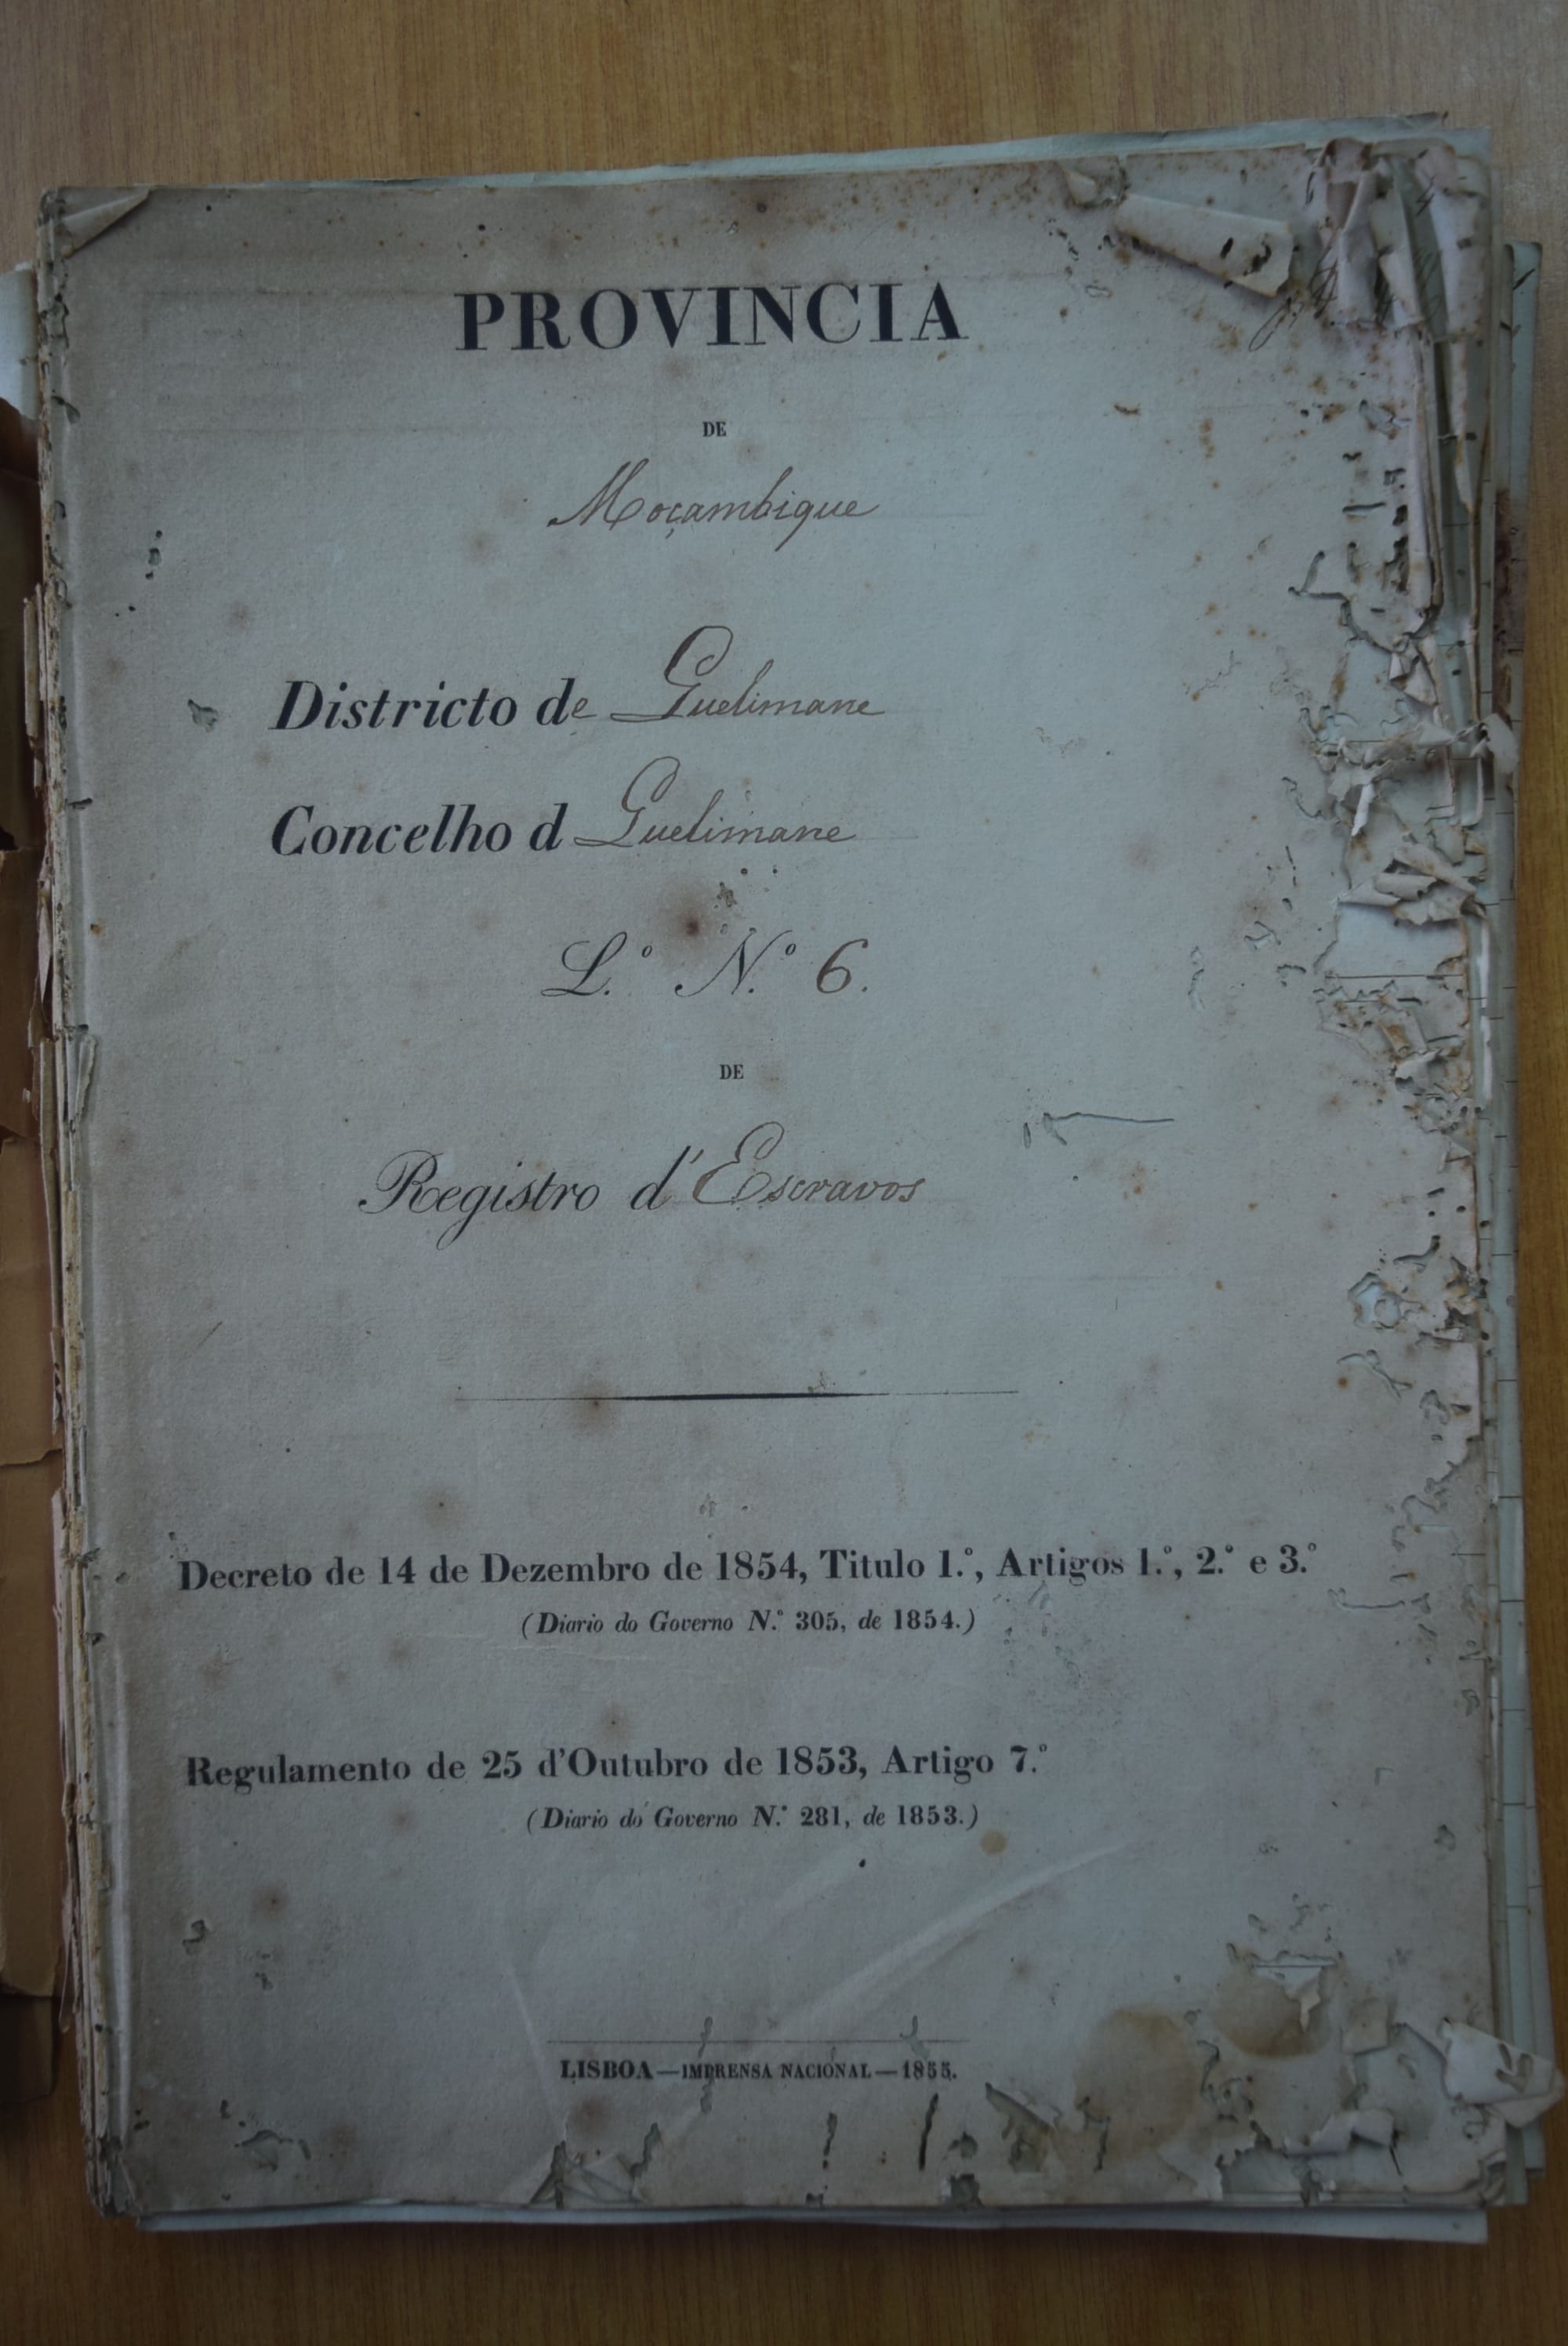 PROVINCIA
DE
Moçambique
Districto de Quelimane
Concelho d Quelimane
L.º N.º 6.
DE
Registro d'Escravos
Decreto de 14 de Dezembro de 1854, Titulo 1.º, Artigos 1.º, 2.º e 3.º
(Diario do Governo N.º 305, de 1854.)
Regulamento de 25 d'Outubro de 1853, Artigo 7.º
(Diario do Governo N.º 281, de 1853.)
LISBOA—IMPRENSA NACIONAL—1855.